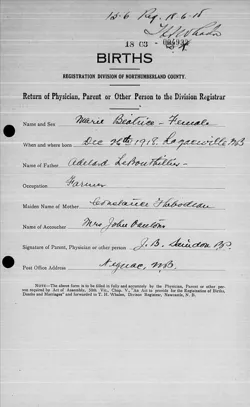 18 03
BIRTHS
REGISTRATION DIVISION OF NORTHUMBERLAND COUNTY.
Return of Physician, Parent or Other Person to the Division Registrar
Name and Sex Marie Beatrice - Female
When and where born. Dec 26th 1918. Rogersville NB
Name of Father, Adelard LeBouthillier
Occupation Farmer
Maiden Name of Mother Constance Thibodeau
Name of Accoucher Mrs John
Signature of Parent, Physician or other person J. B.
Post Office Address Neguac, N.B.
NOTE.—The above form is to be filled in fully and accurately by the Physician, Parent or other person required by Act of Assembly, Chap. V., "An Act to provide for the Registration of Births, Deaths and Marriages" and forwarded to T. H. Whalen, Division Registrar, Newcastle, N. B.